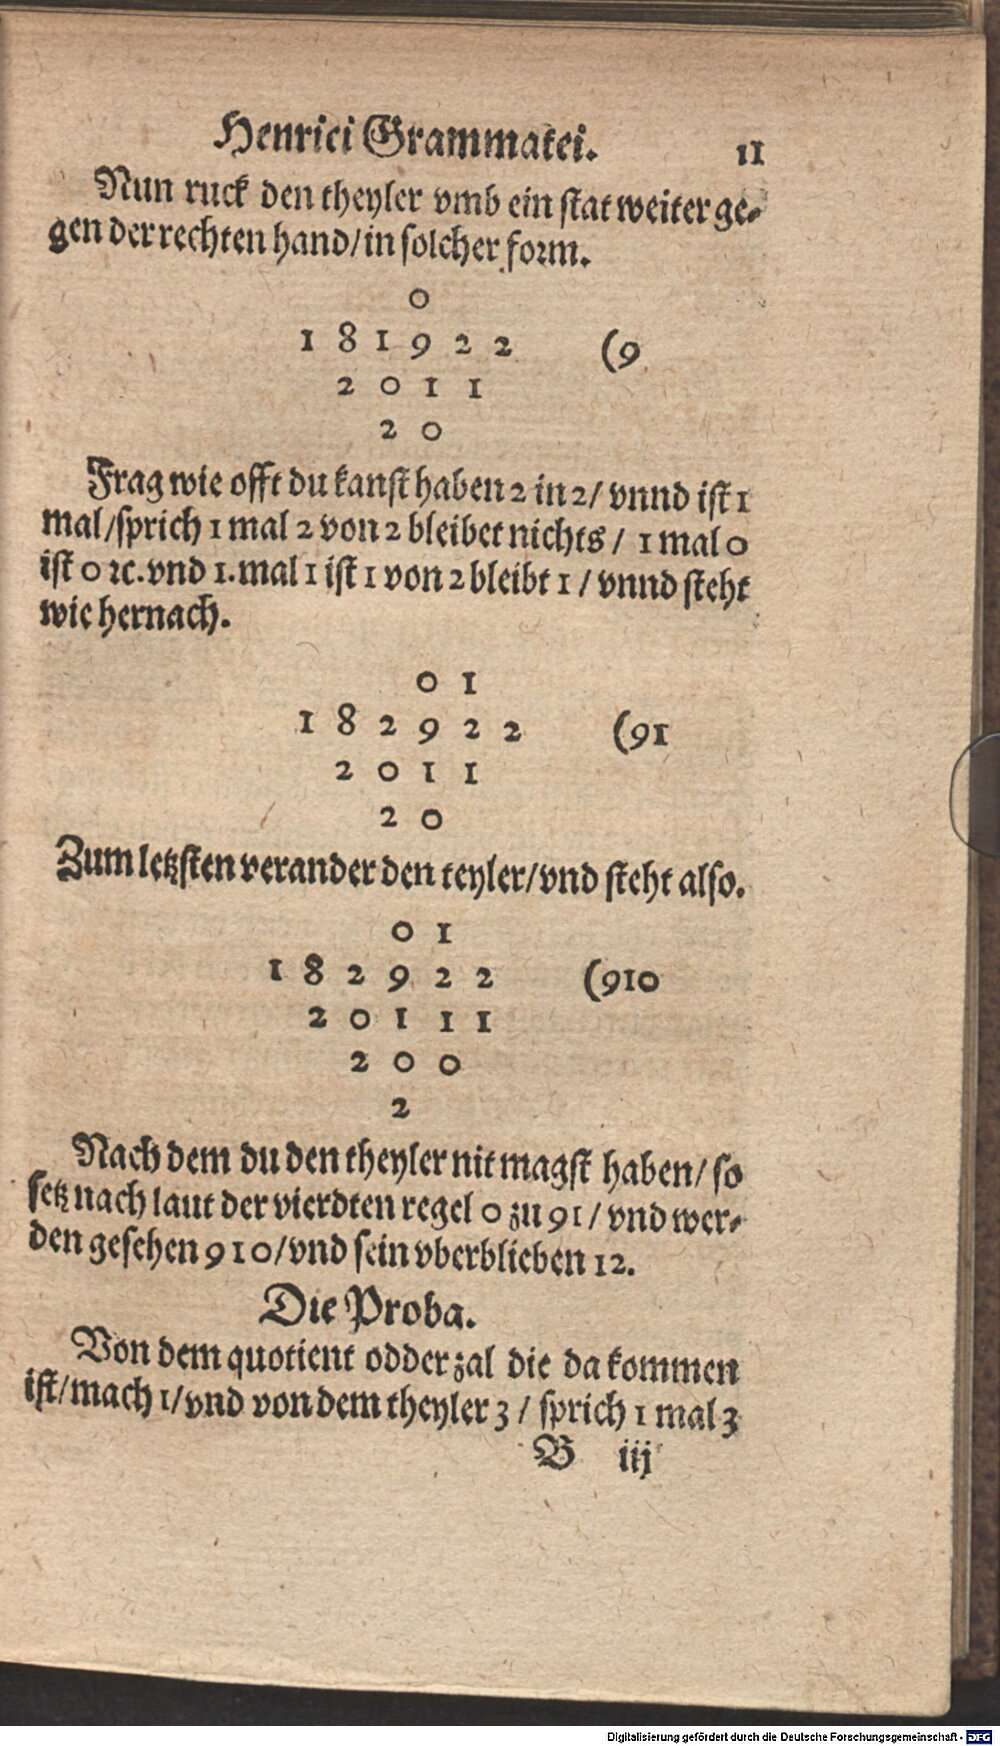 Henrici Grammatei. 11
Nun ruck den theyler vmb ein stat weiter ge-
gen der rechten hand/in solcher form.
0
1 8 1 9 2 2 (9
2 0 1 1
2 0
Frag wie offt du kanst haben 2 in 2/ vnnd ist 1
mal/sprich 1 mal 2 von 2 bleibet nichts / 1 mal 0
ist 0 ꝛc. vnd 1. mal 1 ist 1 von 2 bleibt 1 / vnnd steht
wie hernach.
0 1
1 8 2 9 2 2 (91
2 0 1 1
2 0
Zum letzsten verander den teyler/vnd steht also.
0 1
1 8 2 9 2 2 (910
2 0 1 1 1
2 0 0
2
Nach dem du den theyler nit magst haben/ so
setz nach laut der vierdten regel 0 zu 91 / vnd wer-
den gesehen 910/vnd sein vberblieben 12.
Die Proba.
Von dem quotient odder zal die da kommen
ist/mach 1/vnd von dem theyler 3 / sprich 1 mal 3
B iij
Digitalisierung gefördert durch die Deutsche Forschungsgemeinschaft - DFG